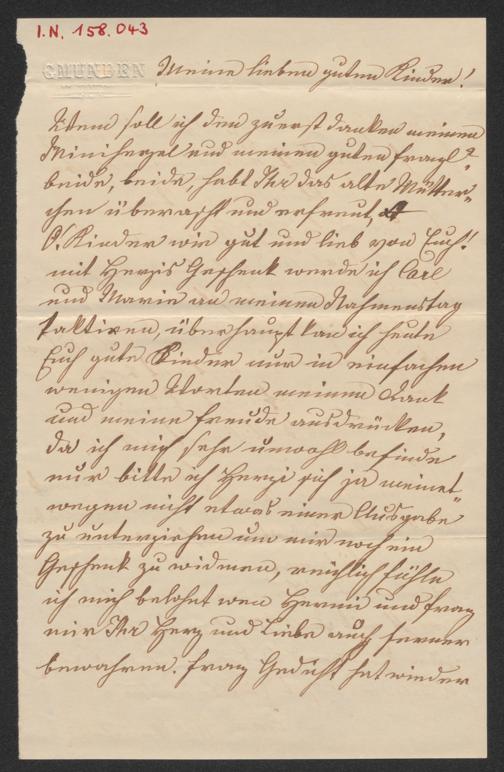 I.N. 158.043
GMUNDEN
Meine lieben guten Kinder!
Wem soll ich den zuerst danken meinem
Miniherzel und meinen guten Franzl?
beide, beide, habt Ihr das alte Mütter„
chen überascht und erfreut,
O, Kinder wie gut und lieb von Euch!
mit Herzis Geschenk werde ich Carl
und Marie an meinem Nahmenstag
traktiren, überhaupt kan ich heute
Euch gute Kinder nur in einfachen
wenigen Worten meinen Dank
und meine Freude ausdrücken,
da ich mich sehr unwohl befinde
nur bitte ich Herzi sich ja meinet„
wegen nicht etwas einer Ausgabe
zu unterziehen um mir noch ein
Geschenk zu widmen, reichlich fühle
ich mich belohnt wen Hermi und Franz
mir Ihr Herz und Liebe auch ferner
bewahren. Franz Gedicht hat wieder